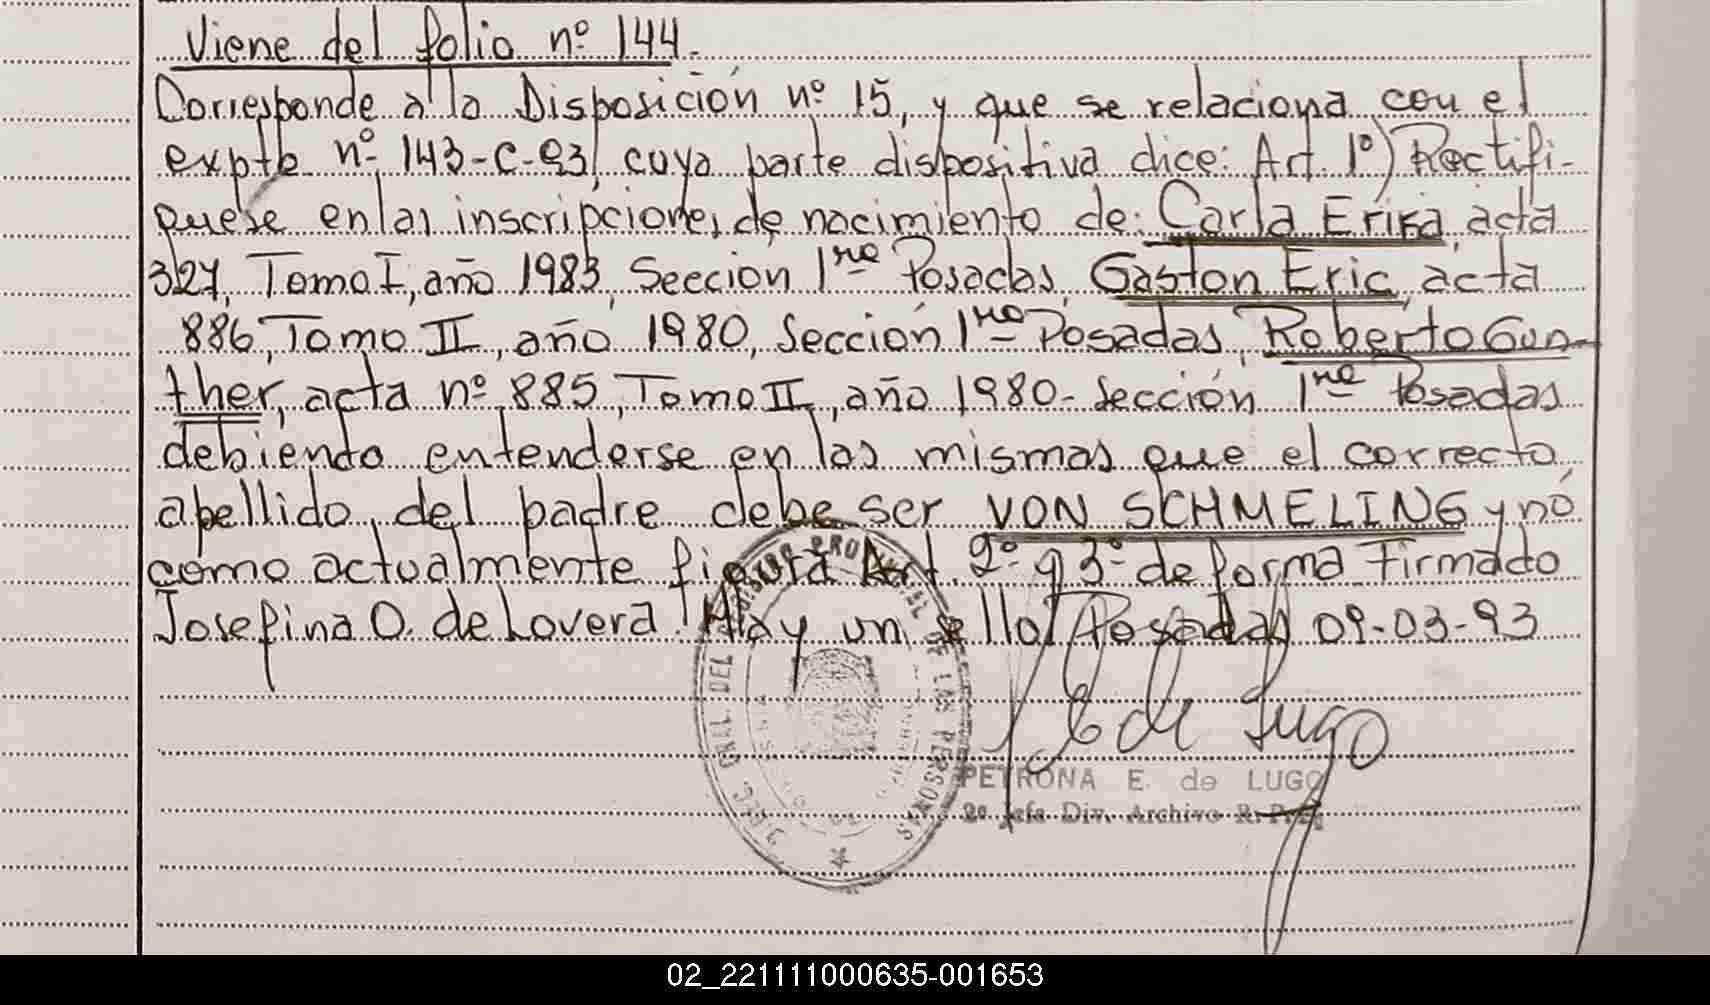 Viene del folio nº 144.
Corresponde a la Disposición nº 15, y que se relaciona con el
expte nº 143-C-93, cuya parte dispositiva dice: Art. 1º) Rectifi-
quese en las inscripciones de nacimiento de: Carla Erika, acta
327, Tomo I, año 1983, Seccion 1ra Posadas, Gaston Eric, acta
886, Tomo II, año 1980, Sección 1ra Posadas, Roberto Gun-
ther, acta nº 885, Tomo II, año 1980- Sección 1ra Posadas
debiendo entenderse en las mismas que el correcto
apellido del padre debe ser VON SCHMELING y nó
como actualmente figura Art. 2º y 3º de forma Firmado
Josefina O. de Lovera. Hay un sello. Posadas 09-03-93
DIREC. GRAL. DEL REGISTRO PROVINCIAL DE LAS PERSONAS
de Lugo
PETRONA E. de LUGO
2º Jefa Div. Archivo R.P.P.
02_221111000635-001653